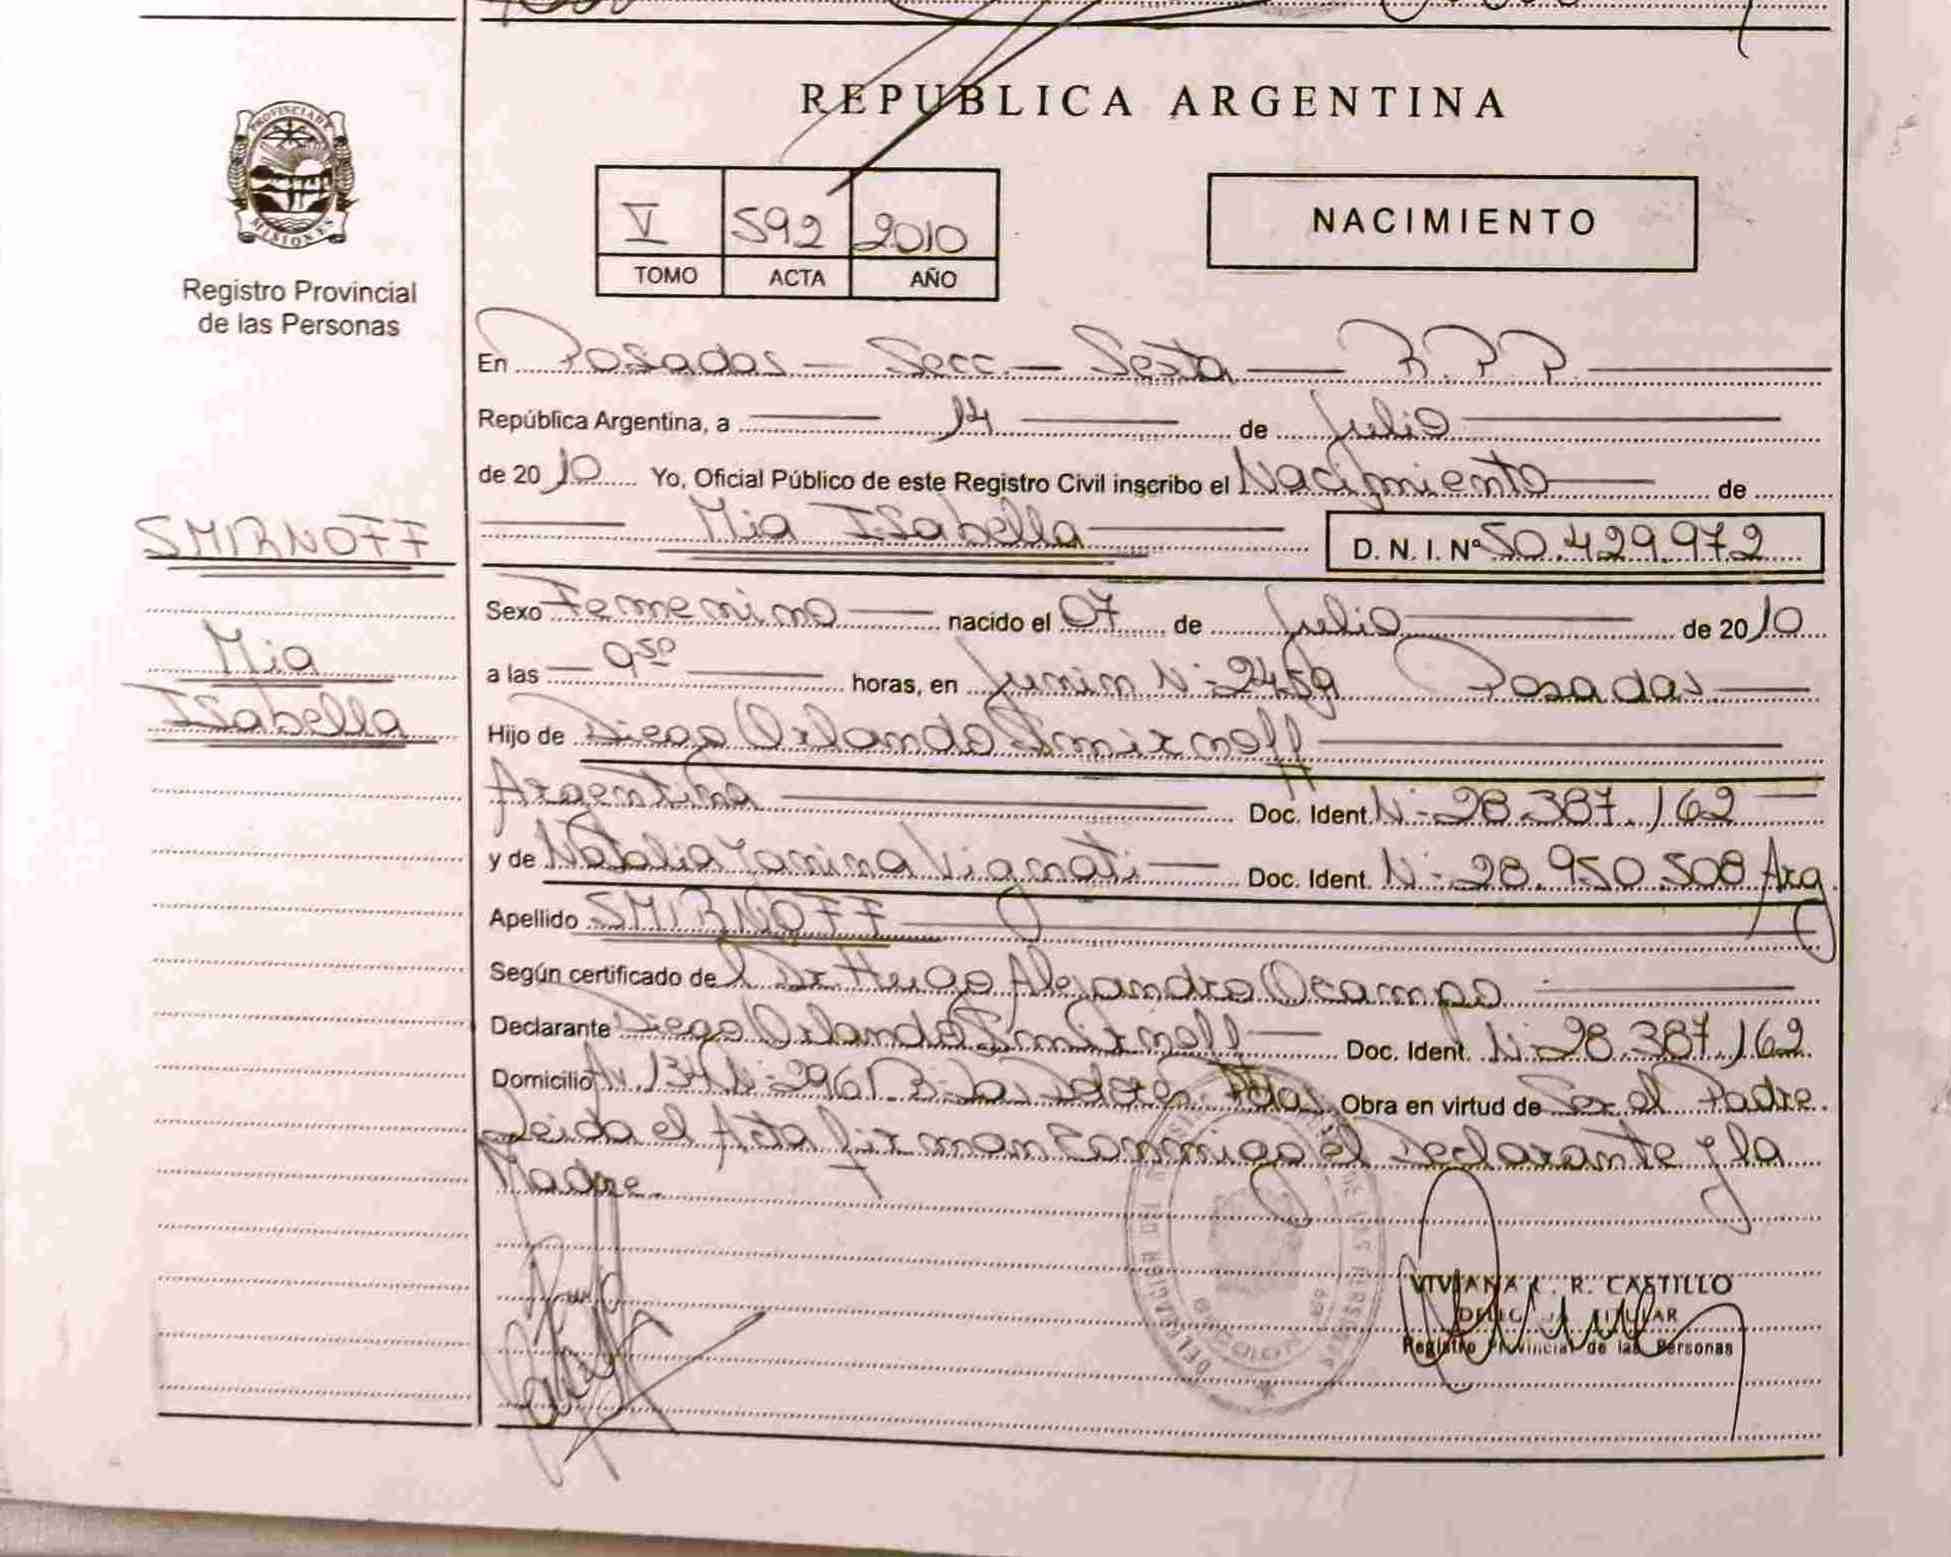 PROVINCIA DE
MISIONES
Registro Provincial
de las Personas
SMIRNOFF
Mia
Isabella
REPUBLICA ARGENTINA
V 592 2010
TOMO ACTA AÑO
NACIMIENTO
En Posadas - Secc. - Sexta - R.P.P.
República Argentina, a 14 de Julio
de 2010 Yo, Oficial Público de este Registro Civil inscribo el Nacimiento de
Mia Isabella D. N. I. Nº 50.429.972
Sexo Femenino nacido el 07 de Julio de 2010
a las 9 50 horas, en Junin N: 2459 Posadas
Hijo de Diego Orlando Smirnoff
Argentina Doc. Ident. N: 28.387.162
y de Natalia Yanina Vignati Doc. Ident. N: 28.950.508 Arg.
Apellido SMIRNOFF
Según certificado del Dr Hugo Alejandro Ocampo
Declarante Diego Orlando Smirnoff Doc. Ident. N: 28.387.162
Domicilio Av. 134 N: 2961 Pdas Obra en virtud de Ser el Padre.
Leida el Acta firman conmigo el Declarante y la
Madre.
VIVIANA R. CASTILLO
TITULAR
Registro Provincial de las Personas